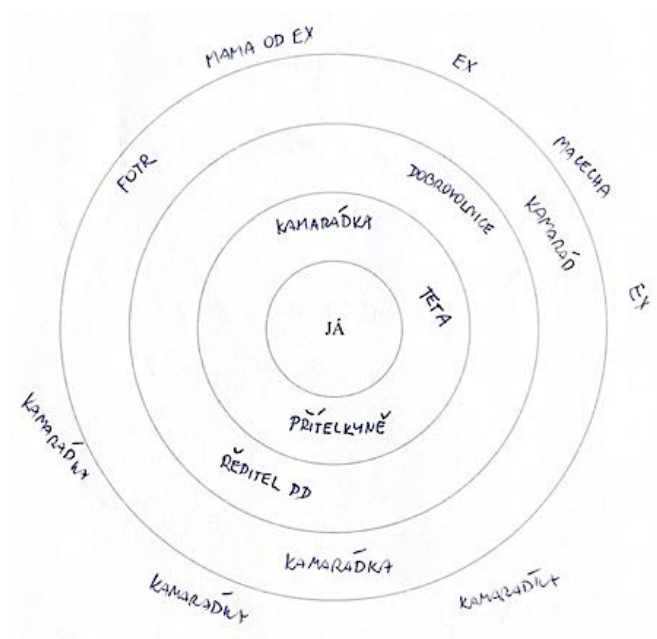 MAMA OD EX
EX
MACECHA
FOTR
DOBROVOLNICE
KAMARÁD
KAMARÁDKA
TETA
EX
JÁ
PŘÍTELKYNĚ
ŘEDITEL DD
KAMARÁDKA
KAMARÁDKY
KAMARADÍKY
KAMARADÍKY